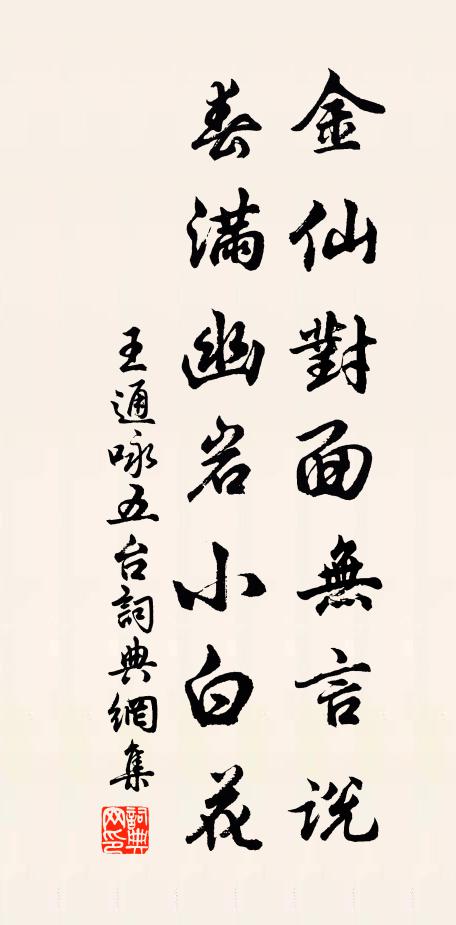 金仙對面無言説
春滿幽岩小白花
王通咏五台詞典網集
詞典網印